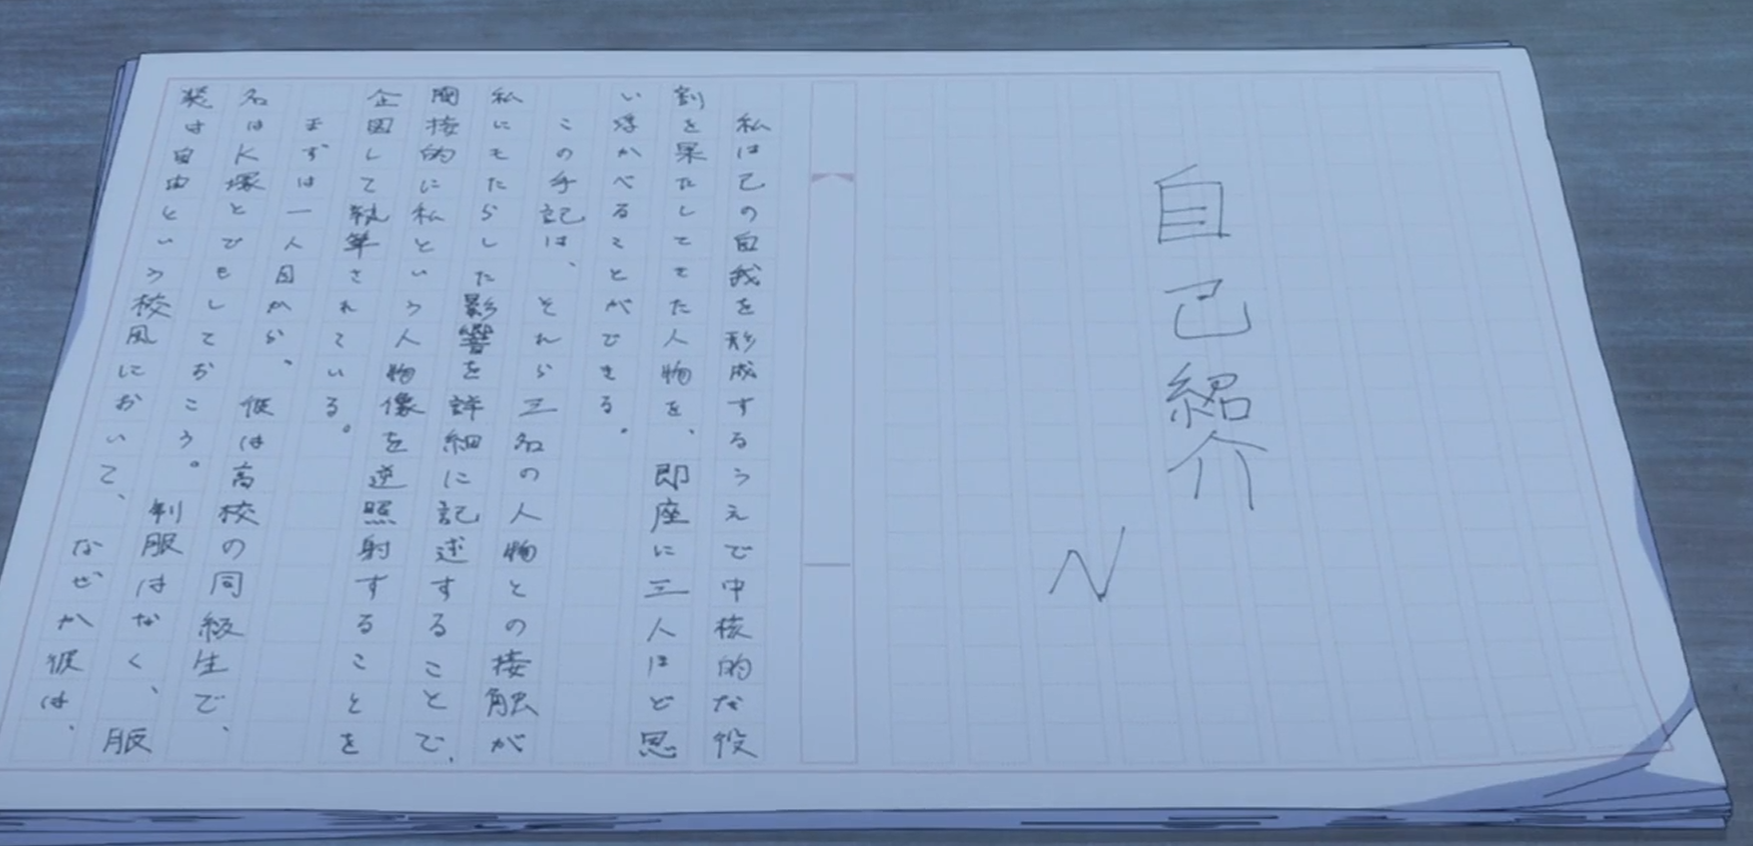 自己紹介
N
私は己の自我を形成するうえで中核的な役
割を果たしてきた人物を、即座に三人ほど思
い浮かべることができる。
この手記は、それら三名の人物との接触が
私にもたらした影響を詳細に記述することで、
間接的に私という人物像を逆照射することを
企図して執筆されている。
まずは一人目から。彼は高校の同級生で、
名はK塚とでもしておこう。制服はなく、服
装は自由という校風において、なぜか彼は、